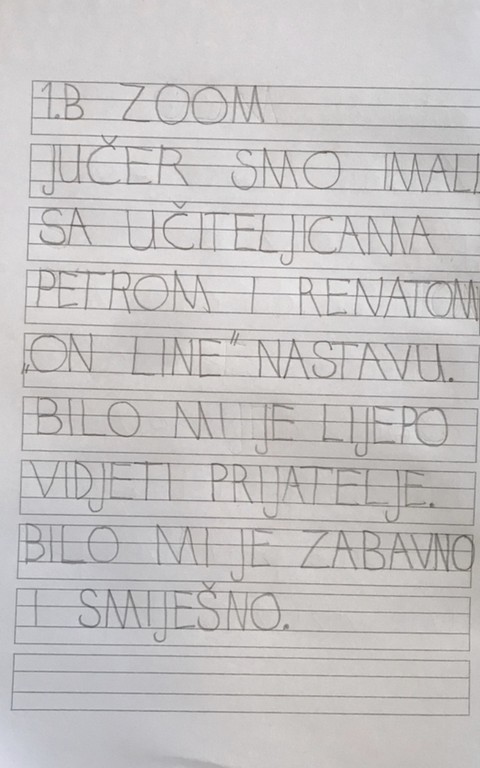 1.B ZOOM
JUČER SMO IMALI
SA UČITELJICAMA
PETROM I RENATOM
„ON LINE" NASTAVU.
BILO MI JE LIJEPO
VIDJETI PRIJATELJE.
BILO MI JE ZABAVNO
I SMIJEŠNO.